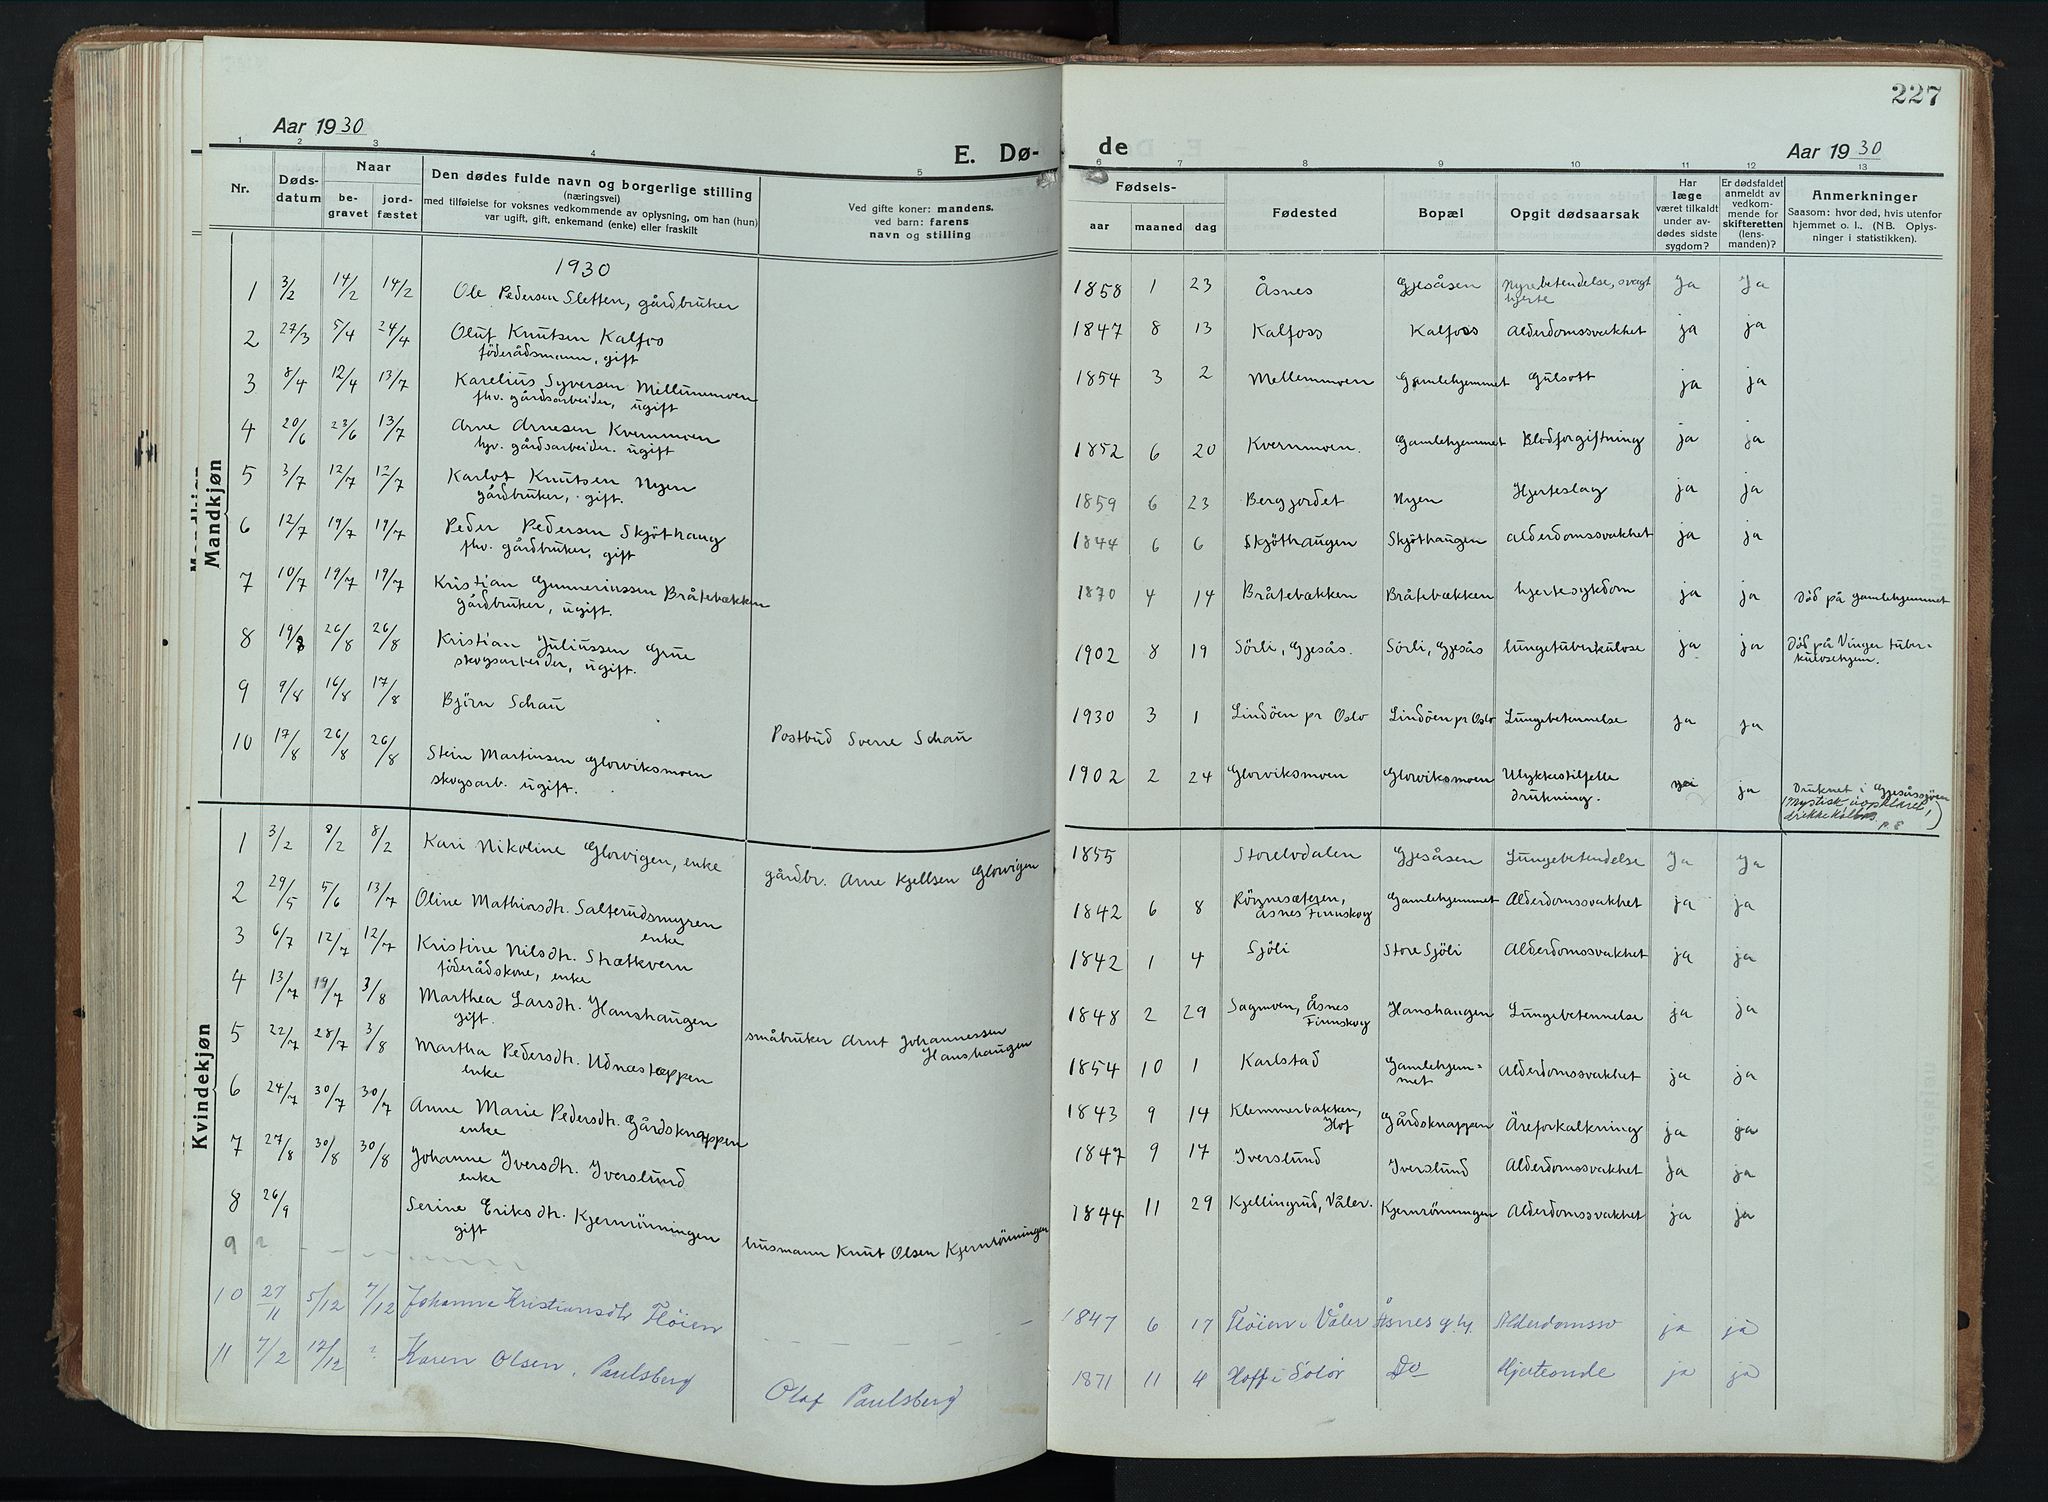 227
Aar 1930
E. Dø-
de
Aar 1930
1 2 3 4 5 6 7 8 9 10 11 12 13
Nr. Døds-datum Naar be-gravet jord-fæstet
Den dødes fulde navn og borgerlige stilling
(næringsvei)
med tilføielse for voksnes vedkommende av oplysning, om han (hun)
var ugift, gift, enkemand (enke) eller fraskilt
Ved gifte koner: mandens.
ved barn: farens
navn og stilling
Fødsels-
aar maaned dag
Fødested
Bopæl
Opgit dødsaarsak
Har læge været tilkaldt under av-dødes sidste sygdom?
Er dødsfaldet anmeldt av vedkom-mende for skifteretten (lens-manden)?
Anmerkninger
Saasom: hvor død, hvis utenfor
hjemmet o. l.. (NB. Oplys-
ninger i statistikken).
Mandkjøn
1930
1 3/2 14/2 14/2 Ole Pedersen Sletten, gårdbruker 1858 1 23 Åsnes Gjesåsen Nyrebetendelse, svagt hjerte Ja Ja
2 27/3 5/4 24/4 Oluf Knutsen Kalfos
föderådsmann, gift 1847 8 13 Kalfoss Kalfoss Alderdomssvakhet ja ja
3 8/4 12/4 13/7 Karelius Syversen Millimemoen
fhv. gårdsarbeider, ugift 1854 3 2 Mellemmoen Gamlehjemmet Gulsott ja ja
4 20/6 23/6 13/7 Arne Arnesen Kvernmoen
hv. gårdsarbeider. ugift 1852 6 20 Kvernmoen. Gamlehjemmet Blodforgiftning ja ja
5 3/7 12/7 12/7 Karlot Knutsen Nyen
gårdbruker, gift. 1859 6 23 Bergjordet Nyen Hjerteslag ja ja
6 12/7 19/7 19/7 Peder Pedersen Skjöthaug
fhv. gårdbruker, gift 1844 6 6 Skjöthaugen Skjöthaugen Alderdomssvakhet ja ja
7 10/7 19/7 19/7 Kristian Gunneriussen Bråtebækken
gårdbruker, ugift. 1870 4 14 Bråtebækken Bråtebækken hjertesykdom ja ja Död på gamlehjemmet
8 19/8 26/8 26/8 Kristian Juliussen Grue
skogsarbeider, ugift. 1902 8 19 Sörli, Gjesås. Sörli, Gjesås lungetuberkulose ja ja Död på Vinger tuber-
kulosehjem.
9 9/8 16/8 17/8 Björn Schau Postbud Sverre Schau 1930 3 1 Lindöen pr Oslo Lindöen pr Oslo Lungebetennelse ja ja
10 17/8 26/8 26/8 Stein Martinsen Glorviksmoen
skogsarb. ugift. 1902 2 24 Glorviksmoen Glorviksmoen Ulykkestilfelle
drukning. nei ja Druknet i Gjesåssjöen
(Mystisk uopklaret,
Kvindekjøn
1 3/2 8/2 8/2 Kari Nikoline Glorvigen, enke gårdbr. Arne Kjellsen Glorvigen 1855 Storelvdalen Gjesåsen Lungebetendelse Ja Ja
2 29/5 5/6 13/7 Oline Mathiasdtr. Salterudsmyren
enke 1842 6 8 Rögnesæteren,
Åsnes Finnskog Gamlehjemmet Alderdomssvakhet ja ja
3 6/7 12/7 12/7 Kristine Nilsdtr. Strætkvern
föderådskone, enke 1842 1 4 Sjöli Store Sjöli Alderdomssvakhet ja ja
4 13/7 19/7 3/8 Marthea Larsdtr. Hanshaugen
gift. småbruker Arnt Johannessen
Hanshaugen 1848 2 29 Sagmoen, Åsnes
Finnskog Hanshaugen Lungebetennelse ja ja
5 22/7 28/7 3/8 Martha Pedersdtr. Udnæstæppen
enke 1854 10 1 Karlstad Gamlehjem-
met Alderdomssvakhet ja ja
6 24/7 30/7 30/7 Anne Marie Pedersdtr. Gårdsknappen
enke 1843 9 14 Klemmerbakken,
Hof Gårdsknappen Åreforkalkning ja ja
7 27/8 30/8 30/8 Johanne Iversdtr. Iverslund
enke 1847 9 17 Iverslund Iverslund Alderdomssvakhet Ja ja
8 26/9 Serine Eriksdtr. Kjernrönningen
gift husmann Knut Olsen Kjernrönningen 1844 11 29 Kjellingrud, Våler. Kjernrönningen Alderdomssvakhet ja ja
9 ?
10 27/11 5/12 7/12 Johanna Kristiansdtr Fløien 1847 6 17 Fløien i Våler Åsnes g.hj. Alderdomssv ja ja
11 7/2 17/12 ? Karen Olsen, Paulsberg Olaf Paulsberg 1871 11 4 Hoff i Solør Do Hjerteonde ja ja